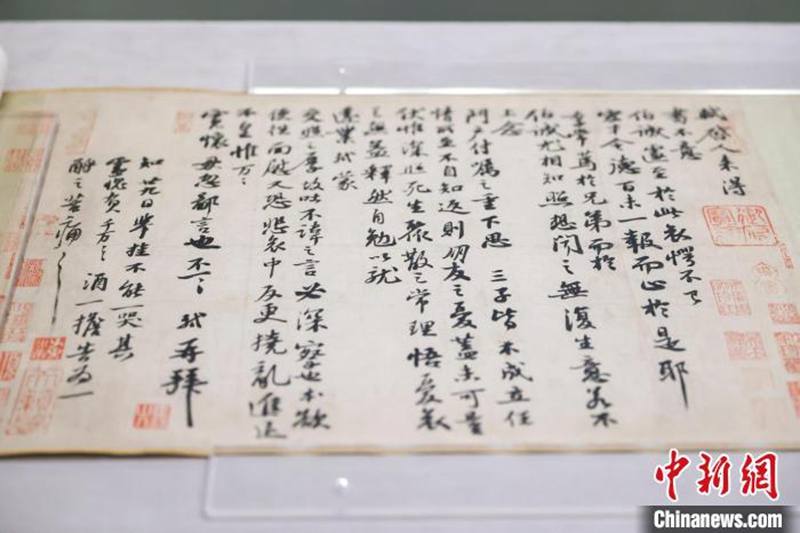 軾啓人來得
書不意
伯誠遽至於此哀愕不已
宏才令德百未一報而止於是耶
季常篤於兄弟而於
伯誠尤相知照想聞之無復生意若不
上念
門戶付囑之重下思三子皆不成立任
情所至不自知返則朋友之憂蓋未可量
伏惟深照死生聚散之常理悟憂哀
之無益釋然自勉以就
遠業軾蒙
交照之厚故吐不諱之言必深察也本欲
便往面慰又恐悲哀中反更撓亂進退
不皇惟万〻
寬懷毋忽鄙言也不一〻軾再拜
知廿九日舉挂不能一哭其
靈愧負千万〻〻酒一擔告為一
酹之苦痛〻〻
中新网
Chinanews.com